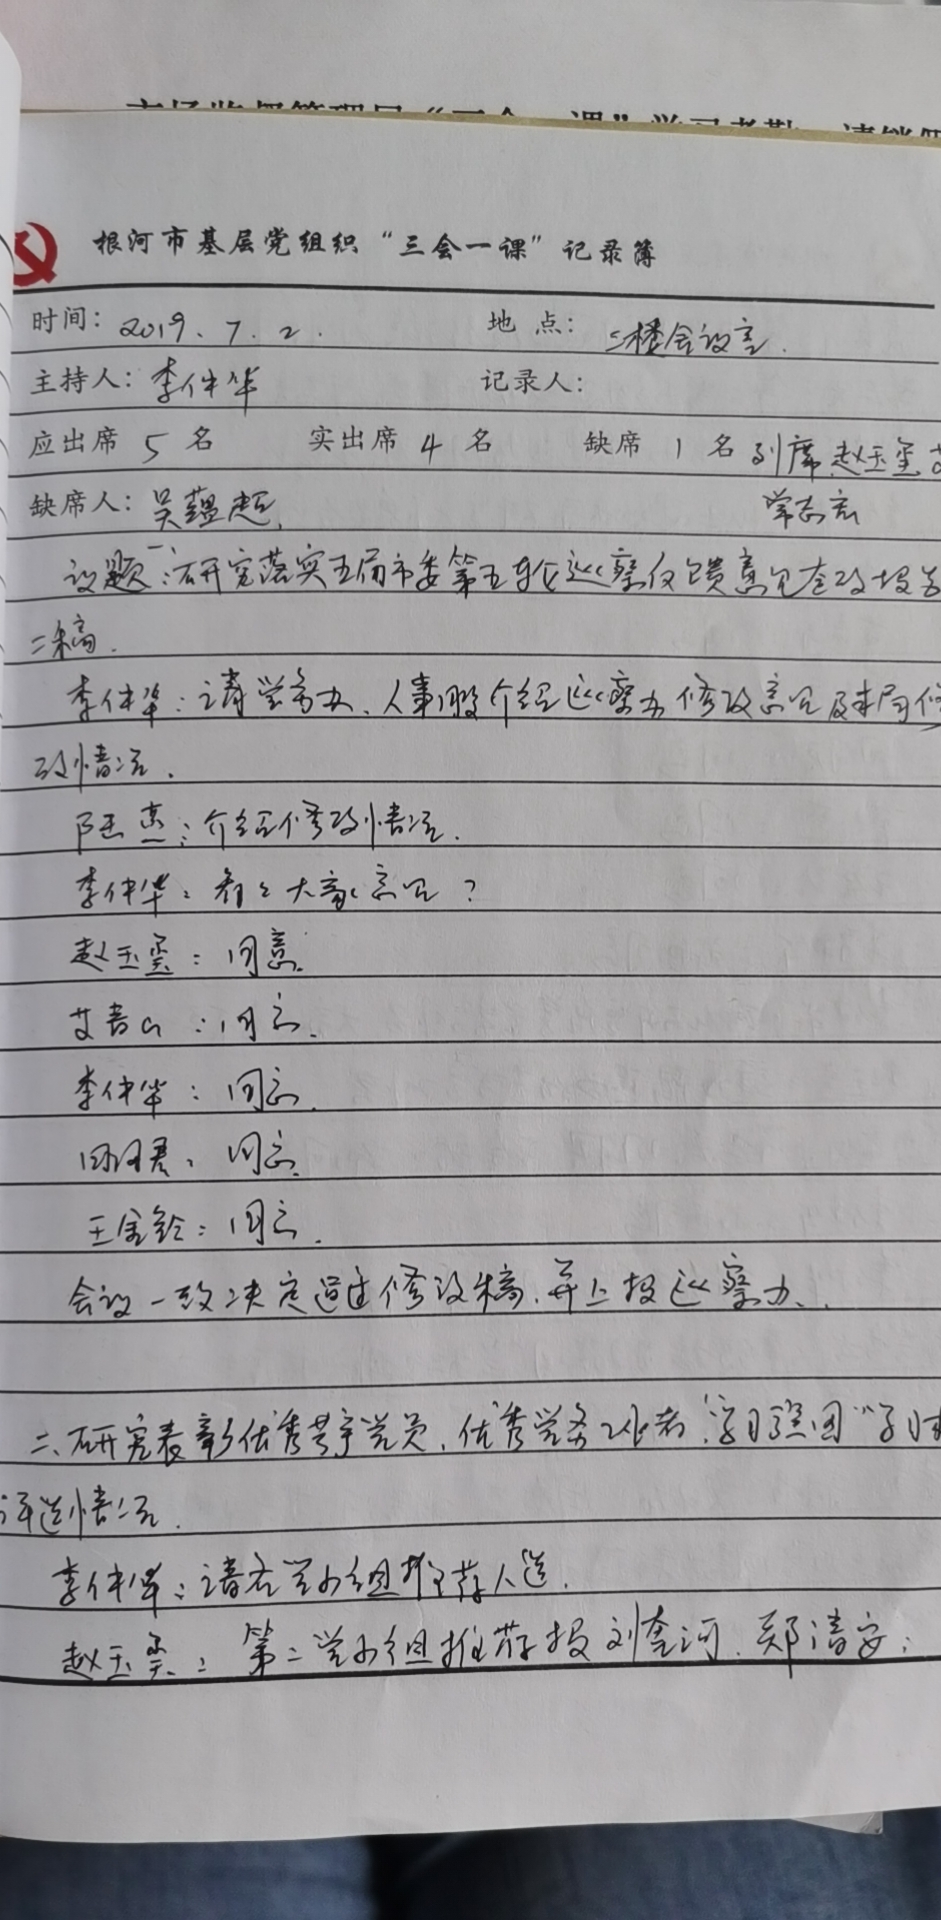 根河市基层党组织“三会一课”记录簿
时间：2019.7.2. 地点：三楼会议室.
主持人：李仲华 记录人：
应出席 5 名 实出席 4 名 缺席 1 名 列席 赵玉玺
缺席人：吴蕴超.
议题：一、研究落实五届市委第五轮巡察反馈意见整改报告
二稿.
李仲华：请党务办、人事股介绍巡察办修改意见及本局修
改情况.
介绍修改情况.
李仲华：看看大家意见？
赵玉玺：同意.
艾青山：同意.
李仲华：同意.
同意.
王金铃：同意.
会议一致决定通过修改稿，并上报巡察办.
二、研究表彰优秀共产党员，优秀党务工作者，“学习强国”学习
评选情况.
李仲华：请各党小组推荐人选.
赵玉玺：第二党小组推荐报刘奎河、郑清安；